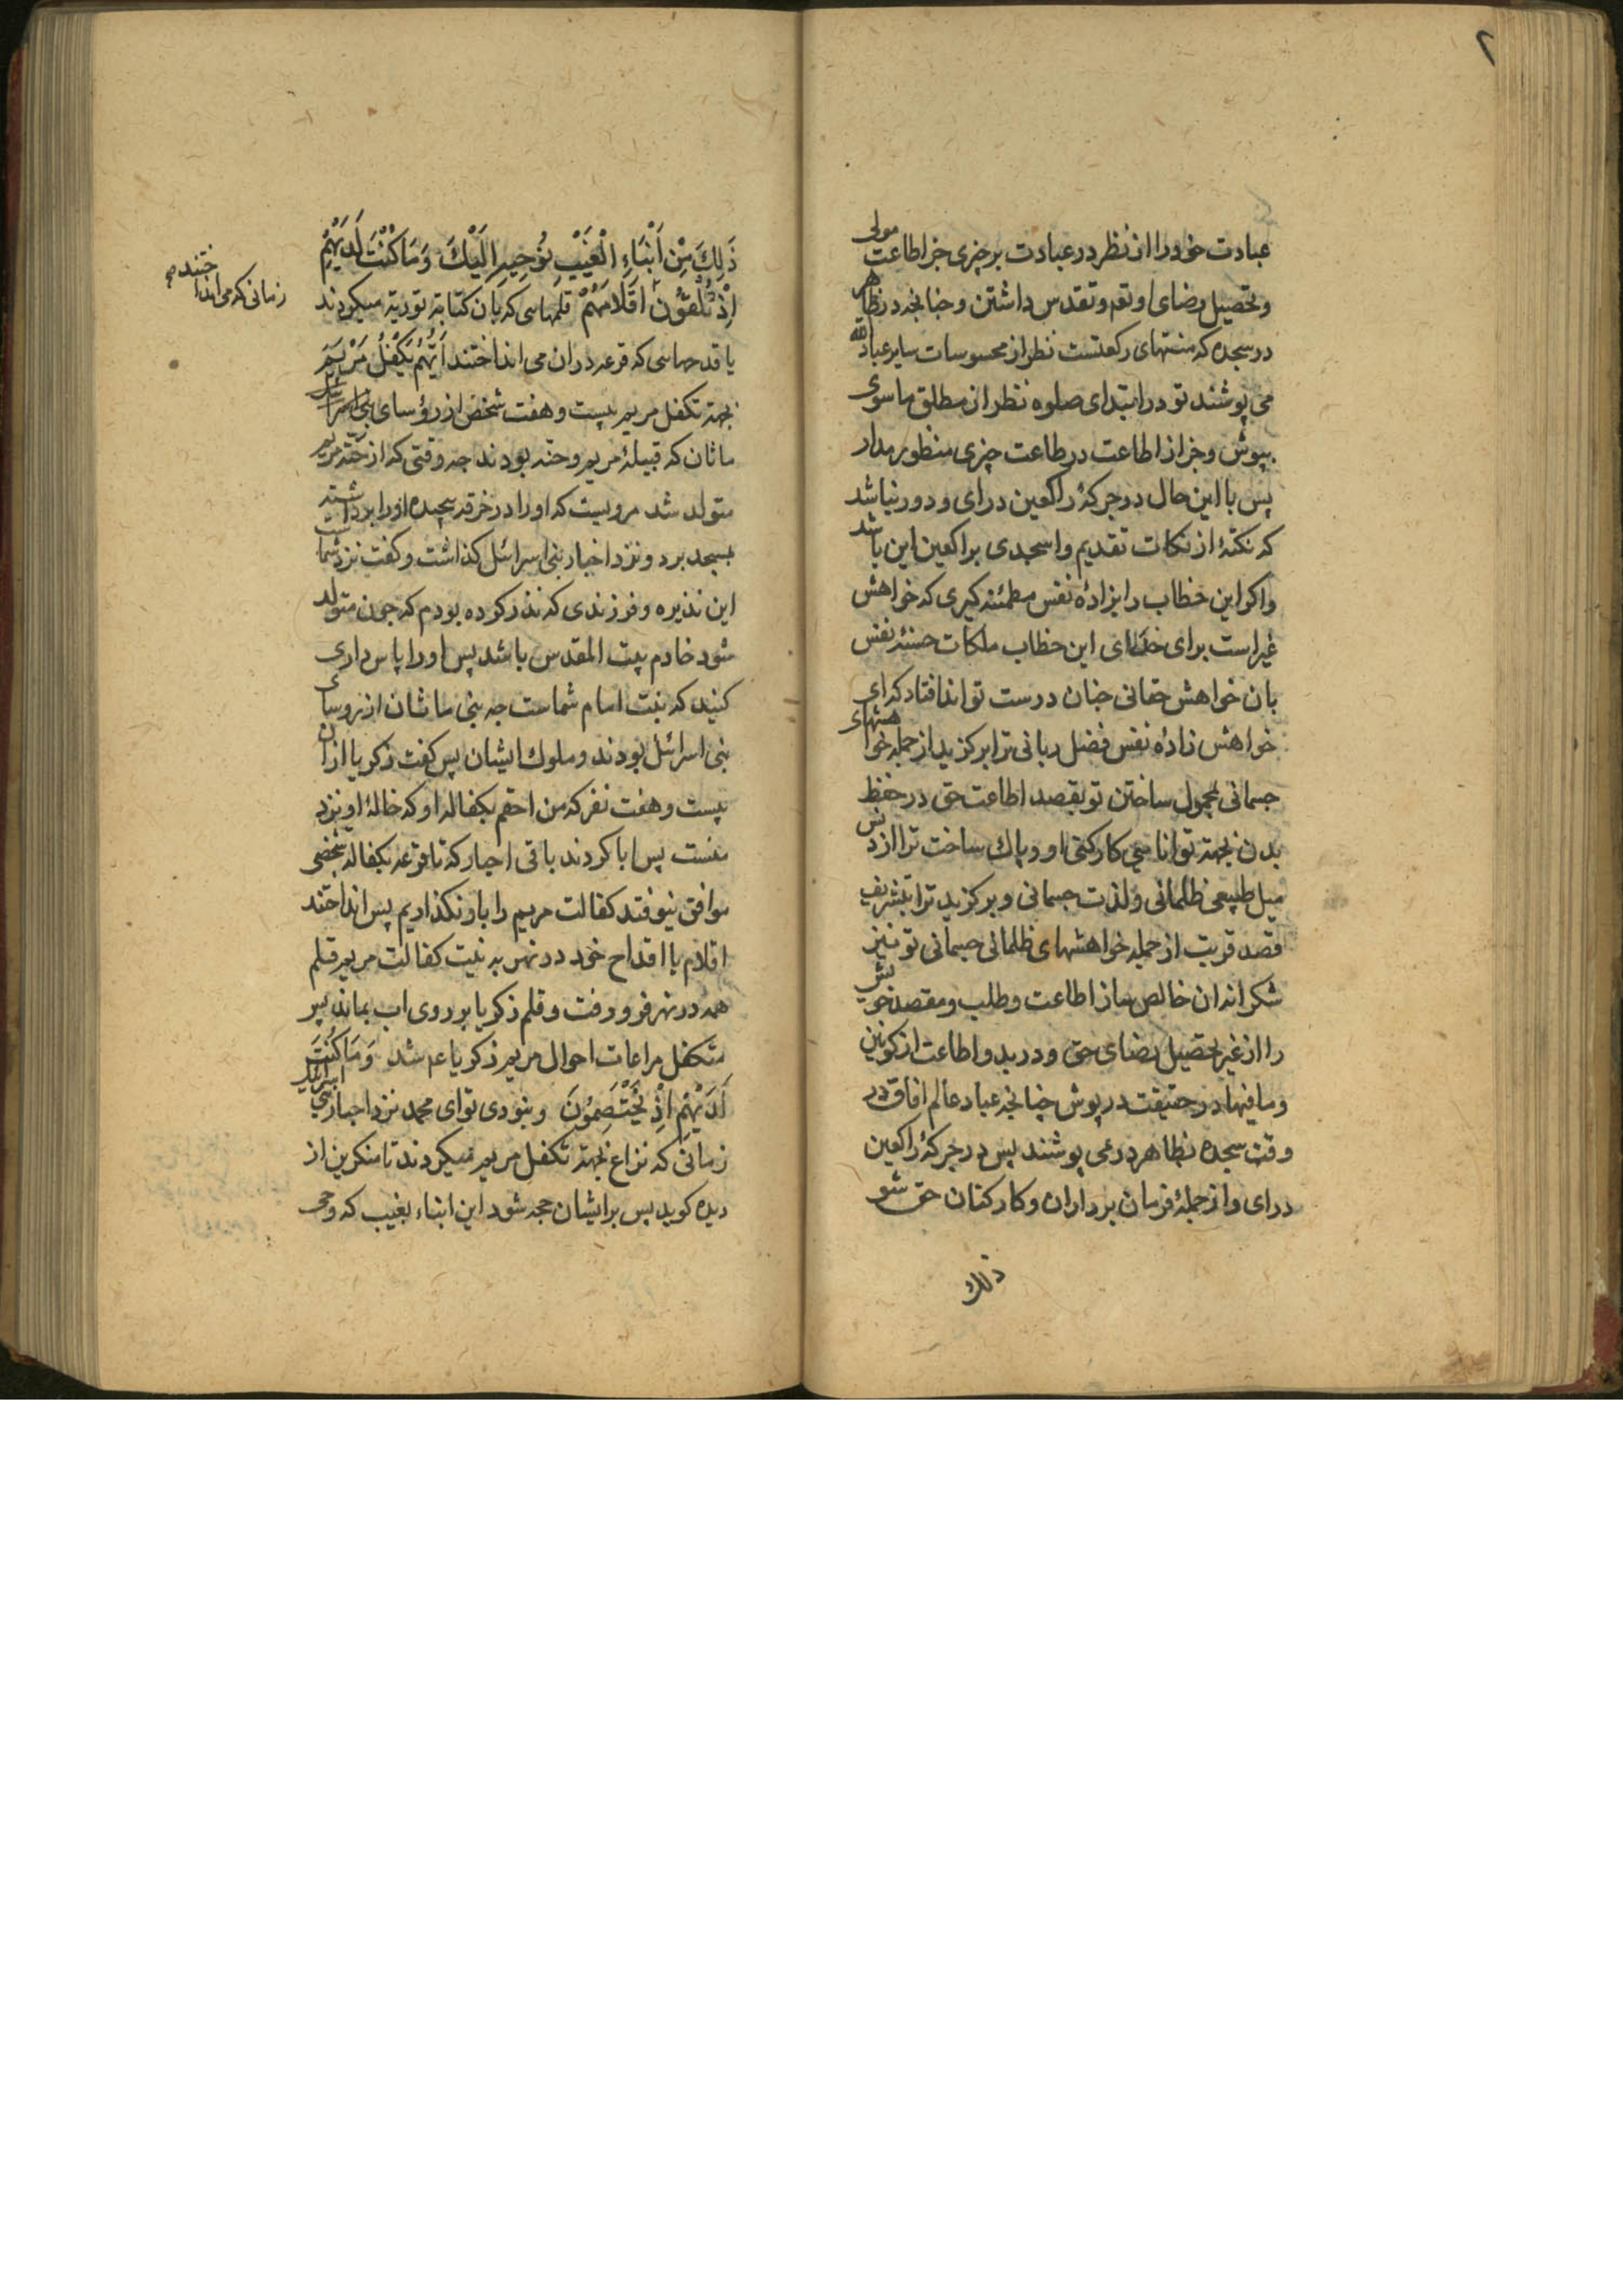 ٢
عبادت خود را از نظر در عبادت بر چیزی جز اطاعت مولی
و تحصیل رضای او تقم و تقدس داشتن و چنانچه در ظاهر
در سجده که منتهای رکعتست نظر از محسوسات سایر عباد الله
می پوشند تو در ابتدای صلوه نظر از مطلق ماسوی
بپوش و جز از اطاعت در طاعت چیزی منظور مدار
پس با این حال در جرکهٔ راکعین درای و دور نباشد
که نکتهٔ از نکات تقدیم واسجدی براکعین این باشد
و اکر این خطاب را بزادهٔ نفس مطمئنه کیری که خواهش
غیر است برای خدای این خطاب ملکات حسنهٔ نفس
بان خواهش حقانی چنان درست تواند افتاد که ای
خواهش زادهٔ نفس فضل ربانی ترا برکزید از جمله خواهشهای
جسمانی بمحمول ساختن تو بقصد اطاعت حق در حفظ
بدن بجهة توانایی کارکنی او و پاك ساخت ترا از دنس
میل طبیعی ظلمانی و لذت جسمانی و برکزید ترا بتشریف
قصد قربت از جمله خواهشهای ظلمانی جسمانی تو نیز
شکرانه ان خالص ساز اطاعت و طلب و مقصد خویش
را از غیر تحصیل رضای حق و دربد و اطاعت از کونین
و مافیها در حقیقت در پوش چنانچه عباد عالم افاق در
وقت سجده بظاهر در می پوشند پس در جرکهٔ راکعین
درای و از جملهٔ فرمان برداران و کارکنان حق شو
ذلك
ذَلِكَ مِنْ اَنْبَاءِ الْغَيْبِ نُوحِيهِ اِلَيْكَ وَمَا كُنْتَ لَدَيْهِمْ
اِذْ يُلْقُوْنَ اَقْلَامَهُمْ قلمهایی که بان کتابة توریة میکردند
زمانی که می انداختند
یا قدحهایی که قرعه در ان می انداختند اَيُّهُمْ يَكْفُلُ مَرْيَمَ
بجهة تکفل مریم بیست و هفت شخص از رؤسای بنی اسرائیل
ماثان که قبیلهٔ مریم و حنه بودند چه وقتی که از حنّه مریم
متولد شد مرویست که او را در خرقه پیچیده او را برداشته
بمسجد برد و نزد احبار بنی اسرائل کذاشت و کفت نزد شماست
این نذیره و فرزندی که نذر کرده بودم که چون متولد
شود خادم بیت المقدس باشد پس او را پاس داری
کنید که بنت امام شماست چه بنی ماثان از روسای
بنی اسرائل بودند و ملوك ایشان پس کفت زکریا از ان
بیست و هفت نفر که من احقم بکفاله او که خالهٔ او نزد
منست پس ابا کردند باقی احبار که تا قرعه بکفاله شخصی
موافق نیوفتد کفالت مریم را باو نکذاریم پس انداختند
اقلام با اقداح خود در نهر به نیت کفالت مریم قلم
همه در نهر فرو رفت و قلم زکریا بر روی اب بماند پس
متکفل مراعات احوال مریم زکریا عم شد وَمَا كُنْتَ
لَدَيْهِمْ اِذْ يَخْتَصِمُونَ و نبودی تو ای محمد نزد احبار بنی اسرائیل
زمانی که نزاع بجهة تکفل مریم میکردند تا منکرین از
دیده کوید پس بر ایشان حجه شود این انباء بغیب که وحی